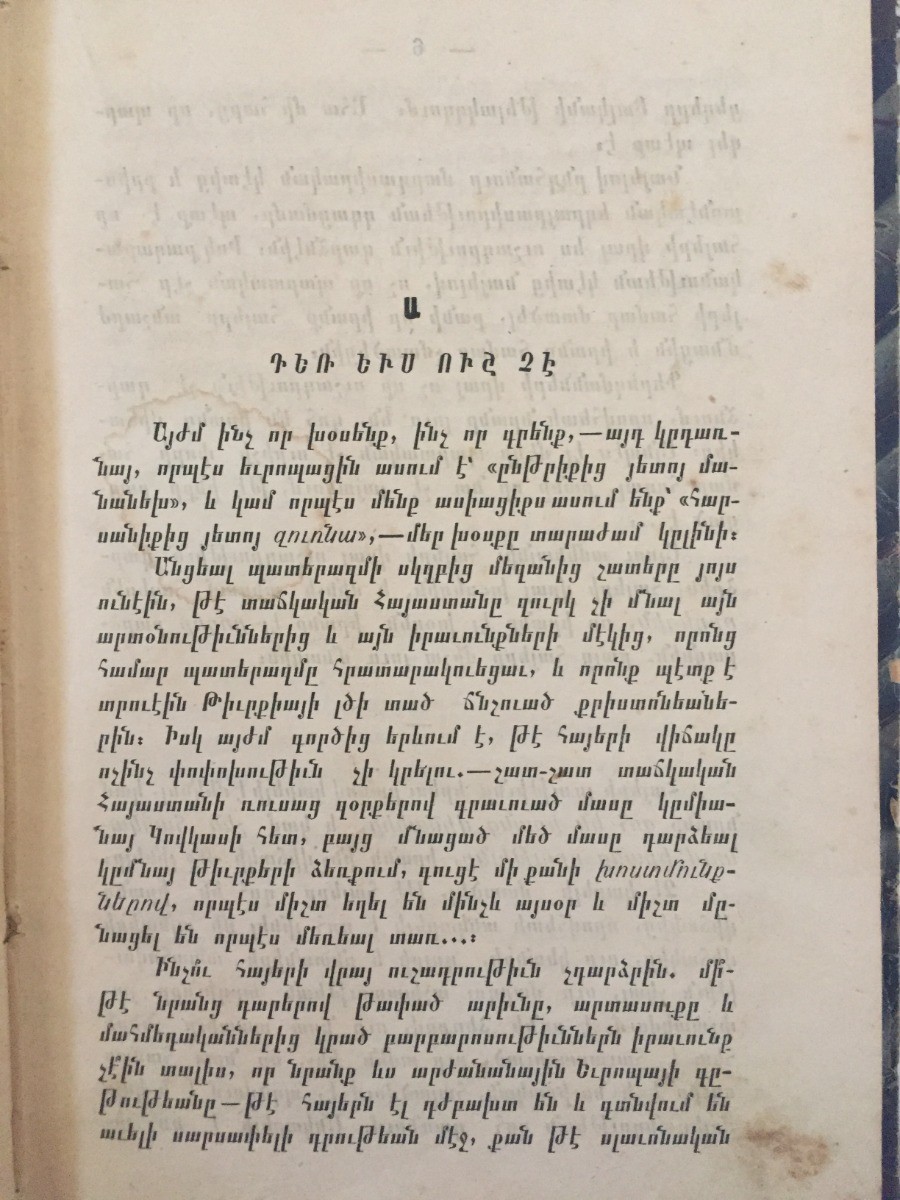 Ա
ԴԵՌ ԵՒՍ ՈՒՇ ՉԷ
Այժմ ինչ որ խօսենք, ինչ որ գրենք,—այդ կըդառ-
նայ, որպէս եւրոպացին ասում է՝ «ընթրիքից յետոյ մա-
նանեխ», և կամ որպէս մենք ասիացիքս ասում ենք՝ «հար-
սանիքից յետոյ զուռնա»,—մեր խօսքը տարաժամ կըլինի։
Անցեալ պատերազմի սկզբից մեզանից շատերը յոյս
ունէին, թէ տաճկական Հայաստանը զուրկ չի մնալ այն
արտօնութիւններից և այն իրաւունքների մէկից, որոնց
համար պատերազմը հրատարակուեցաւ, և որոնք պէտք է
տրուէին Թիւրքիայի լծի տած ճնշուած քրիստոնեանե-
րին։ Իսկ այժմ գործից երևում է, թէ հայերի վիճակը
ոչինչ փոփոխութիւն չի կրելու.—շատ-շատ տաճկական
Հայաստանի ռուսաց զօրքերով գրաւուած մասը կըմիա-
նայ Կովկասի հետ, բայց մնացած մեծ մասը դարձեալ
կըմնայ թիւրքերի ձեռքում, դուցէ մի քանի խոստմունք-
ներով, որպէս միշտ եղել են մինչև այսօր և միշտ մը-
նացել են որպէս մեռեալ տառ...։
Ինչո՞ւ հայերի վրայ ուշադրութիւն չդարձրին. մի՞-
թէ նրանց դարերով թափած արիւնը, արտասուքը և
մահմեդականներից կրած բարբարոսութիւններն իրաւունք
չէ՞ին տալիս, որ նրանք ևս արժանանային Եւրոպայի գը-
թութեանը—թէ հայերն էլ դժբախտ են և գտնվում են
աւելի սարսափելի դրութեան մէջ, քան թէ սլաւոնական